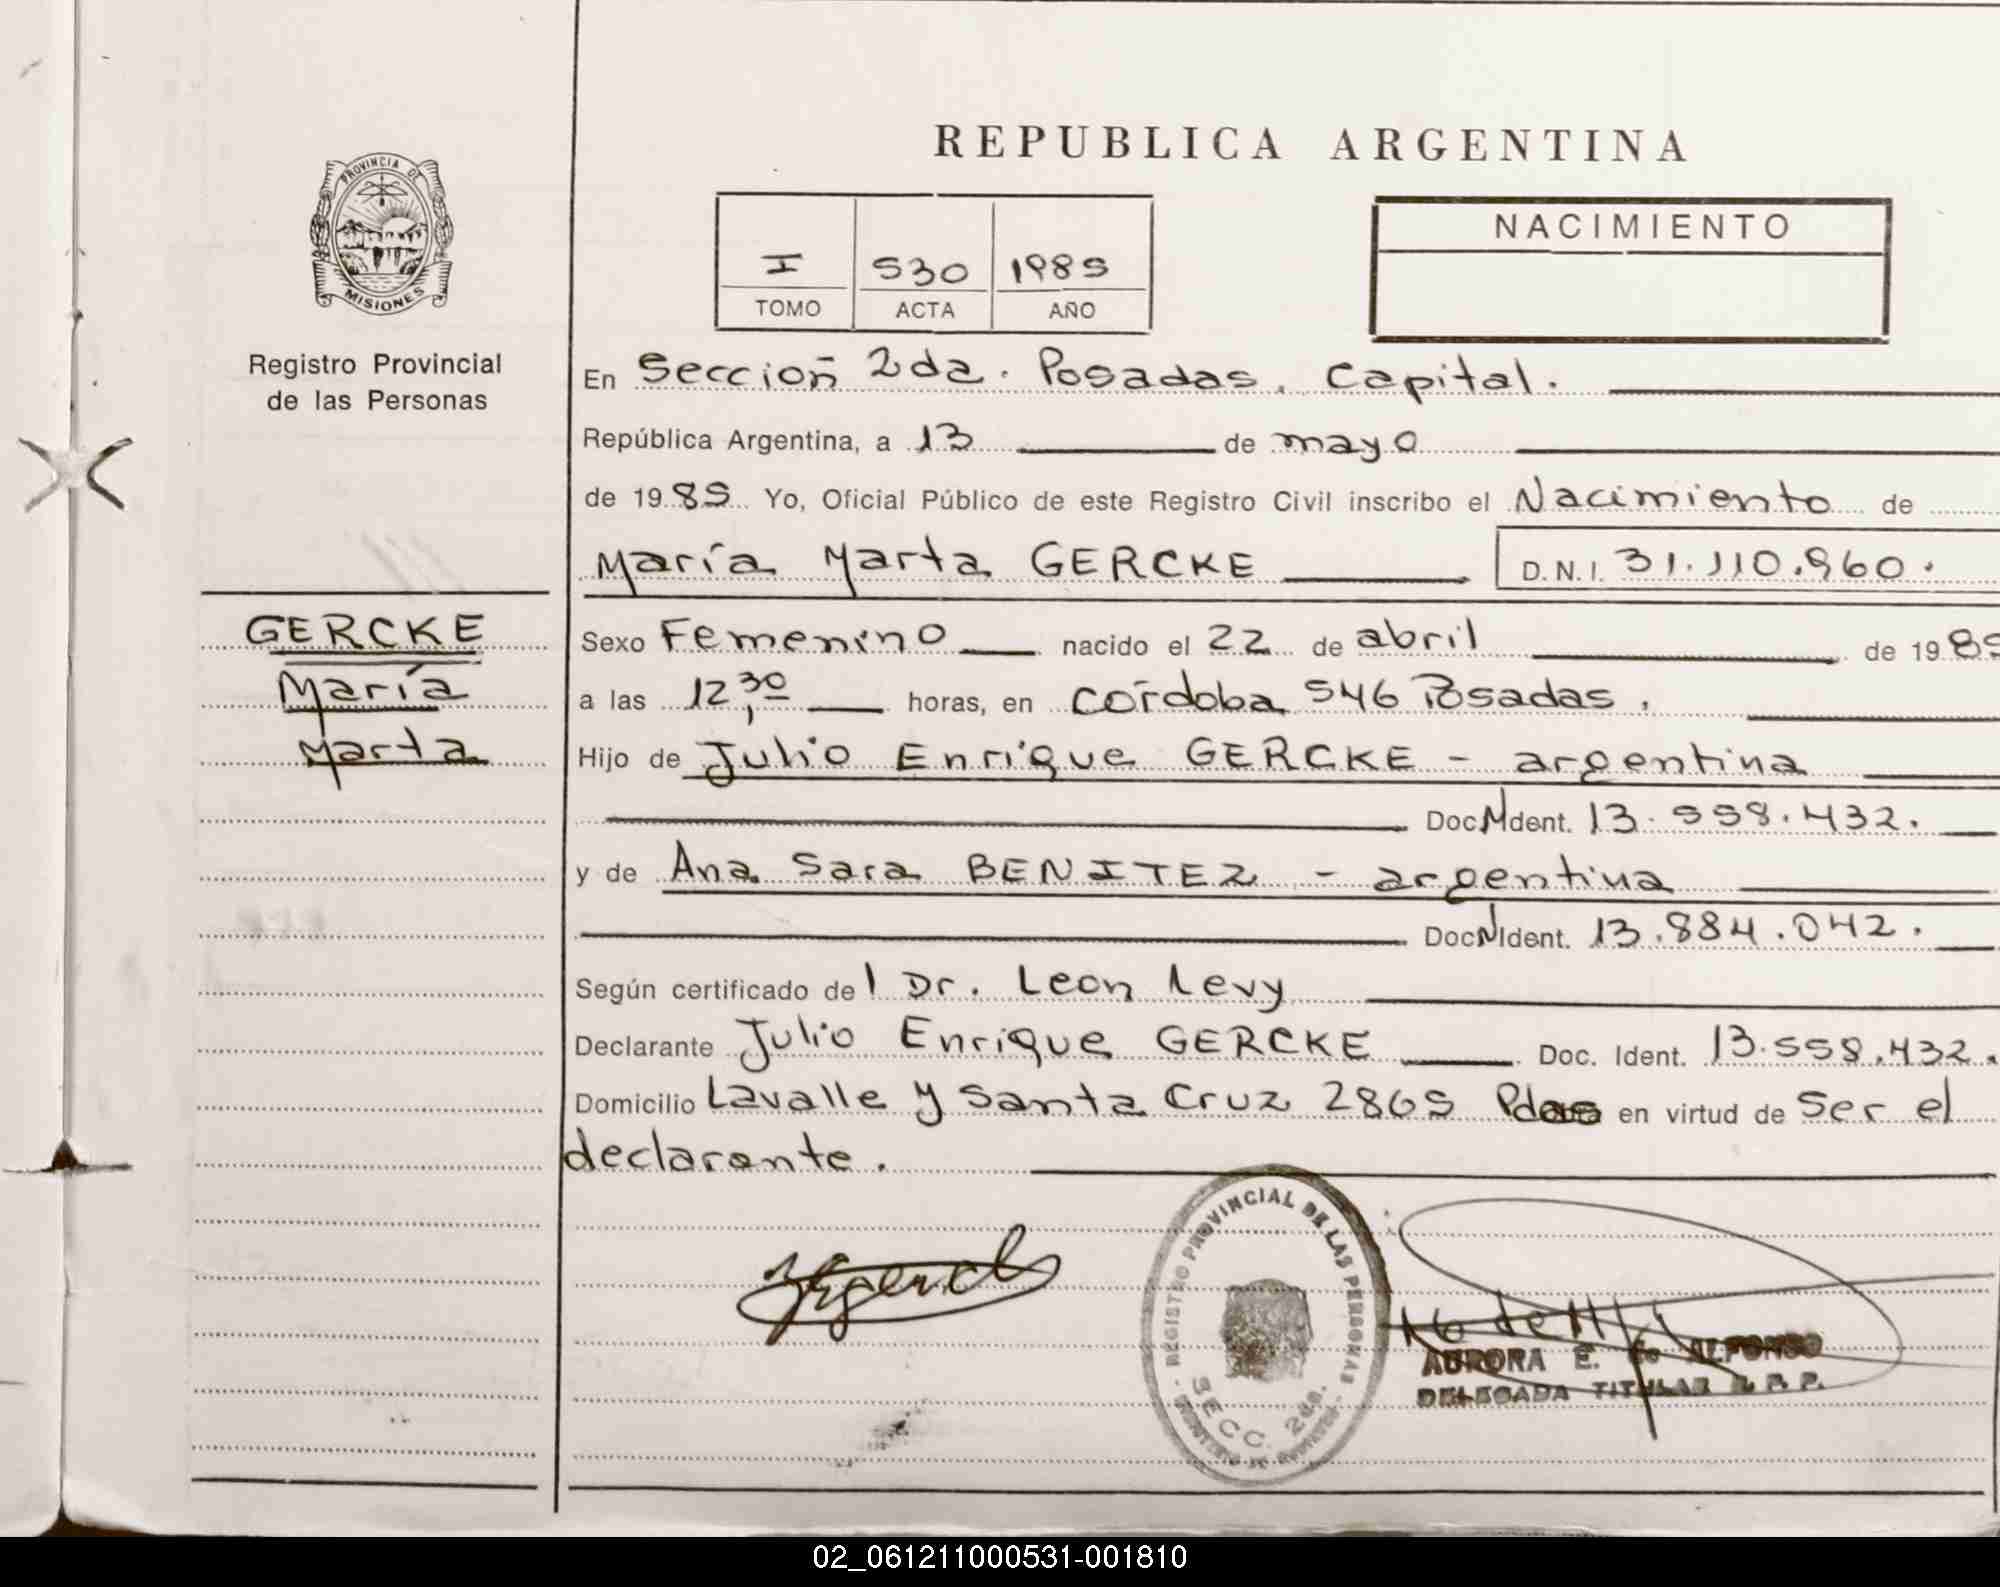 PROVINCIA DE
MISIONES
Registro Provincial
de las Personas
GERCKE
María
Marta
REPUBLICA ARGENTINA
I 530 1985
TOMO ACTA AÑO
NACIMIENTO
En Sección 2da. Posadas. Capital.
República Argentina, a 13 de mayo
de 1985 Yo, Oficial Público de este Registro Civil inscribo el Nacimiento de
María Marta GERCKE D.N.I. 31.110.960.
Sexo Femenino nacido el 22 de abril de 1985
a las 12,30 horas, en Córdoba 546 Posadas.
Hijo de Julio Enrique GERCKE - argentina
Doc. Ident. 13.558.432.
y de Ana Sara BENITEZ - argentina
Doc. Ident. 13.884.042.
Según certificado del Dr. Leon Levy
Declarante Julio Enrique GERCKE Doc. Ident. 13.558.432.
Domicilio Lavalle y Santa Cruz 2865 Pdas en virtud de Ser el
declarante.
REGISTRO PROVINCIAL DE LAS PERSONAS
SECC. 2da.
AURORA E. de ALFONSO
DELEGADA TITULAR R. P. P.
02_061211000531-001810